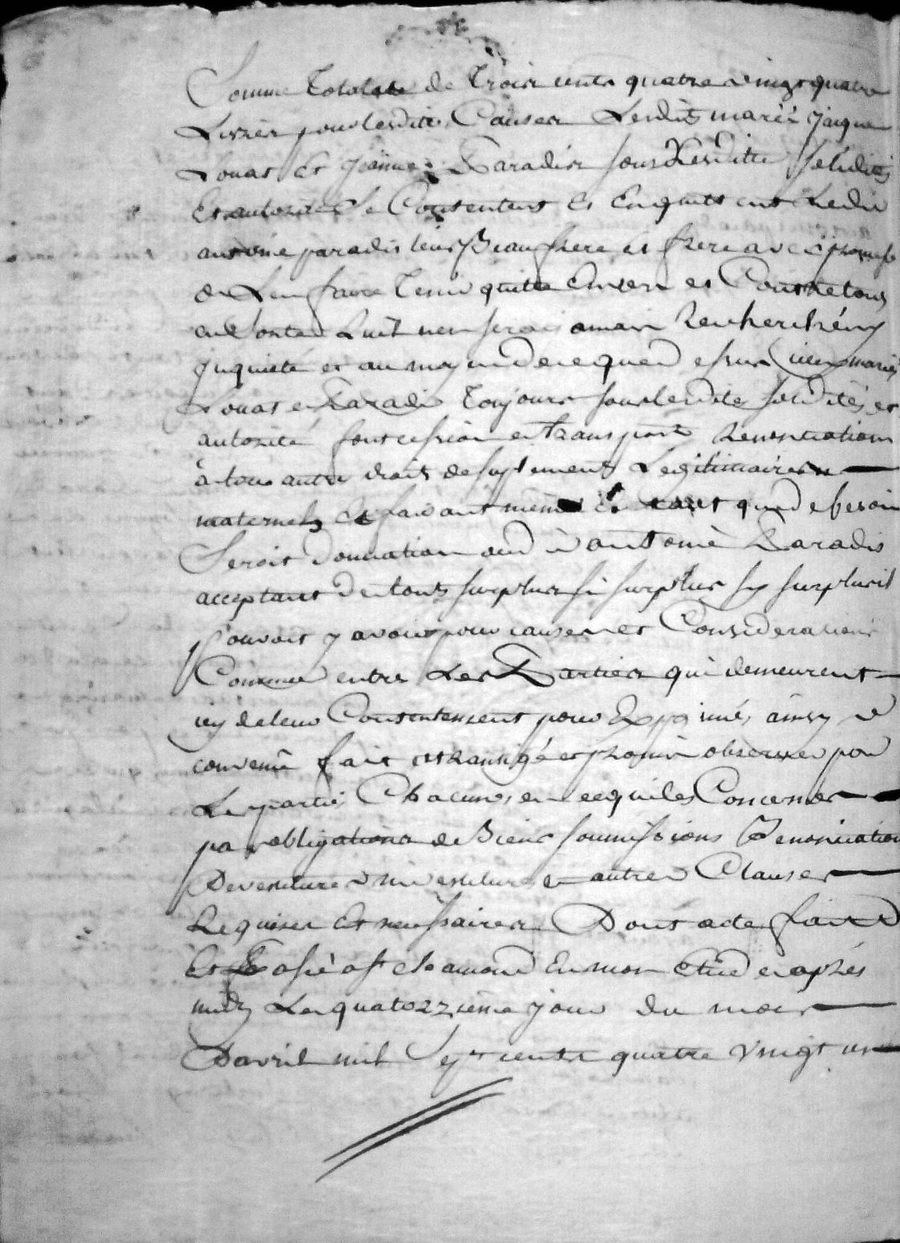 Somme Totalle de Trois cents quatre vingt quatre
Livres pour lesdites Causes Lesdits mariés jaique
Louat Et jeanne Paradis sous Lesditte solidités
Et autorités Se Contentent Et Enquittent Ledit
antoine paradis leur Beaufrere et frere avec promesse
de L'en faire Tenir quitte Envers et Contre tous
en sorte quil n'en serat amais Recherchény
jnquieté et au moyend de cequed essus iceux mariés
Louat et Paradis Toujours sous lesdites solidités et
autorité font cession et Transport Renonciation
à tous autre droits de suplements Legitimaires
maternels Et faisant meme Et tant que de besoin
Seroit donnation aud d antoine Paradis
acceptant de tout surplus si surplus sy surplus il
Pouvoit y avoir pour causes et Considerations
Connue entre Les Parties qui demeurent
icy de leur Consentement pour Exprimés ainsy d
convenu fait et transigé et promis observer par
Les partie Chacunes en cequi les Concerne
par obligations de Biens soumissions Renonciation
Devesture d investiture et autres Clauses
Requises Et necessaires Dont acte fait d
Et Passé a St chamond En mon Etude après
midy Le quatorzzieme jour du mois
Davril mil Sept cents quatre vingt un